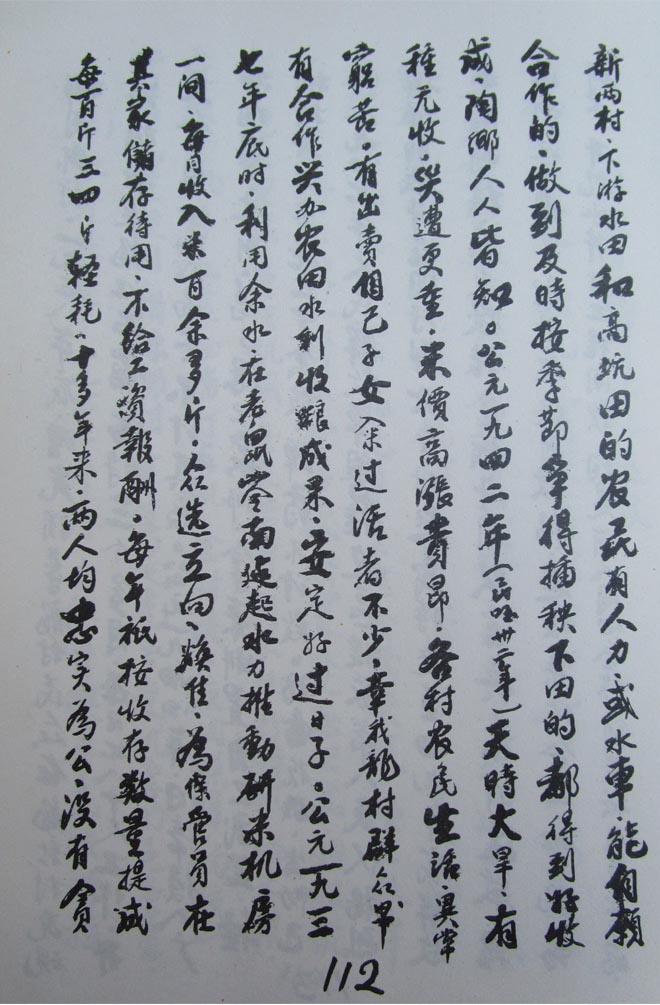 新两村、下游水田和高坑田的农民有人力、或水車、能自願
合作的、做到及時按季節爭得插秧下田的、都得到好收
成、陶鄉人人皆知。公元一九四二年（民 卅二年）天時大旱、有
種无收、災遭更重、米價高漲貴昂、各村农民生活、異常
窮苦、有出賣自己子女入米过活者不少、幸我龍村群众早
有合作兴办农田水利收粮成果、安定好过日子。公元一九三
七年底时、利用余水在老鼠岺南 起水力推動研米机房
一间、每月收入米百余多斤、众选立向、焕佳、為保管員在
其家儲存待用、不給工資報酬、每年祗按收存数量提成
每百斤三四斤輕耗、十多年来、两人均忠实為公、没有貪
112